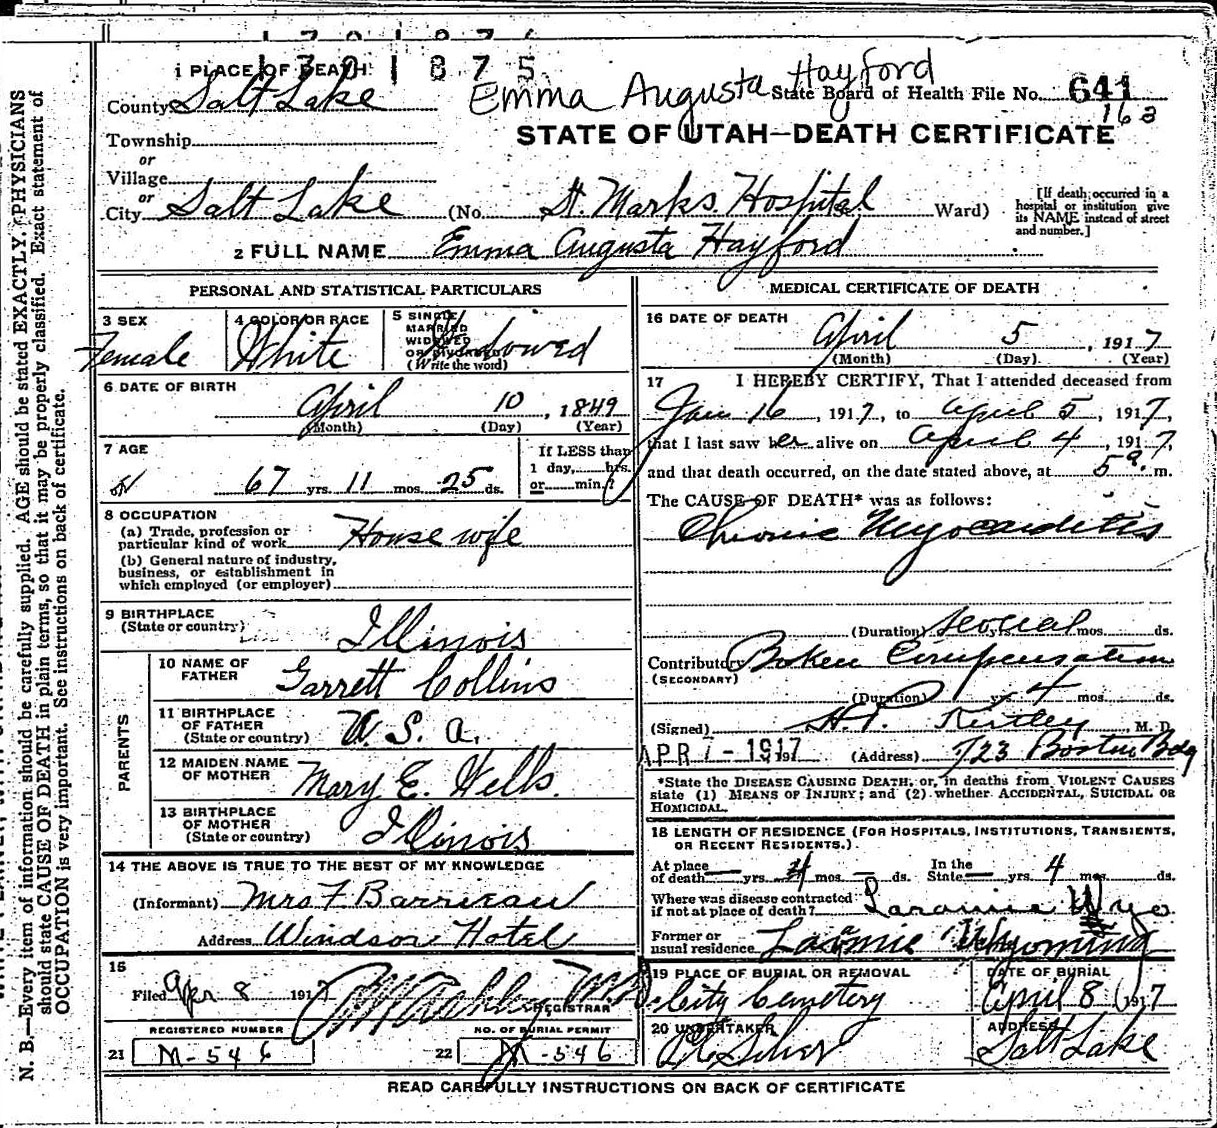 1301875
1 PLACE OF DEATH
County Salt Lake
Emma Augusta Hayford
State Board of Health File No. 641
163
Township
or
Village
or
City Salt Lake (No. St. Marks Hospital St. Ward)
STATE OF UTAH—DEATH CERTIFICATE
[If death occurred in a hospital or institution give its NAME instead of street and number.]
2 FULL NAME Emma Augusta Hayford
PERSONAL AND STATISTICAL PARTICULARS
3 SEX
Female
4 COLOR OR RACE
White
5 SINGLE
MARRIED
WIDOWED
OR DIVORCED
(Write the word)
Widowed
6 DATE OF BIRTH
April 10, 1849
(Month) (Day) (Year)
7 AGE
67 yrs. 11 mos. 25 ds.
If LESS than
1 day, hrs.
or min.?
8 OCCUPATION
(a) Trade, profession or
particular kind of work House wife
(b) General nature of industry,
business, or establishment in
which employed (or employer)
9 BIRTHPLACE
(State or country)
Illinois
PARENTS
10 NAME OF
FATHER
Garrett Collins
11 BIRTHPLACE
OF FATHER
(State or country)
U. S. A.
12 MAIDEN NAME
OF MOTHER
Mary E. Wells.
13 BIRTHPLACE
OF MOTHER
(State or country)
Illinois
14 THE ABOVE IS TRUE TO THE BEST OF MY KNOWLEDGE
(Informant) Mrs F Barrieau
Address Windsor Hotel
15
Filed Apr 8 1917
REGISTRAR
REGISTERED NUMBER
21 M-546
NO. OF BURIAL PERMIT
22 M-546
MEDICAL CERTIFICATE OF DEATH
16 DATE OF DEATH
April 5, 1917
(Month) (Day) (Year)
17 I HEREBY CERTIFY, That I attended deceased from
Jan 16, 1917, to April 5, 1917,
that I last saw her alive on April 4, 1917,
and that death occurred, on the date stated above, at 5 a. m.
The CAUSE OF DEATH* was as follows:
Chronic Myocarditis
(Duration) several yrs. mos. ds.
Contributory Broken Compensation
(SECONDARY)
(Duration) yrs. 4 mos. ds.
(Signed) H.P. Kirtley, M. D.
APR 7 - 1917
(Address) 723 Boston Bdg
*State the DISEASE CAUSING DEATH, or, in deaths from VIOLENT CAUSES
state (1) MEANS OF INJURY; and (2) whether ACCIDENTAL, SUICIDAL OR
HOMICIDAL.
18 LENGTH OF RESIDENCE (FOR HOSPITALS, INSTITUTIONS, TRANSIENTS,
OR RECENT RESIDENTS.)
At place
of death — yrs. 4 mos. — ds. In the
State — yrs. 4 mos. ds.
Where was disease contracted
if not at place of death? Laramie Wyo
Former or
usual residence Larmie Wyoming
19 PLACE OF BURIAL OR REMOVAL
City Cemetery
DATE OF BURIAL
April 8 1917
20 UNDERTAKER
ADDRESS
Salt Lake
READ CAREFULLY INSTRUCTIONS ON BACK OF CERTIFICATE
N. B.—Every item of information should be carefully supplied. AGE should be stated EXACTLY. PHYSICIANS
should state CAUSE OF DEATH in plain terms, so that it may be properly classified. Exact statement of
OCCUPATION is very important. See instructions on back of certificate.